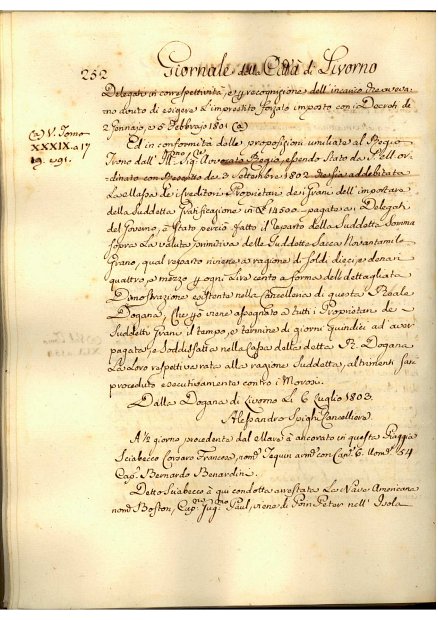 252
Giornale della Città di Livorno
Delegati in correspettività, e recognizione dell'incarico che aveva-
no avuto di esigere l'imprestito forzato imposto con i Decreti de
2 Gennajo, e 5 Febbrajo 1801 (a)
(a) V. Tomo
XXXIX. a 17
19. e 91.
Ed in conformità delle proposizioni umiliate al Regio
Trono dall' Ill.mo Sig. Avvocato Regio, essendo stato da S. M. or-
dinato con Rescritto de 3 Settembre 1802 che sia addebitata
La Massa de Creditori Proprietari dei Grani dell' importare
della Suddetta Gratificazione in £ 14500. pagate ai Delegati
del Governo, è Stato perciò fatto il reparto della Suddetta Somma
sopra La valuta primitiva delle Suddette Sacca Novantamila
Grano, qual reparto riviene a ragione di Soldi dieci, e denari
quattro, e mezzo per ogni Lire cento a forma dell' dettagliata
Dimostrazione esistente nella Cancelleria di questa Reale
Dogana, Che però viene assegnato a tutti i Proprietari de
Suddetti Grani il tempo, e termine di giorni quindici ad aver
pagata, e Soddisfatta nella Cassa della detta R. Dogana
La loro respettiva rata alla ragione Suddetta, altrimenti sarà
proceduto esecutivamente contro i Morosi.
Dalla Dogana di Livorno Li 6 Luglio 1803.
Alessandro Spighi Cancelliere
A ½ giorno, procedente dal Mare à ancorato in questa Piaggia
Sciabecco Corsaro Francese, nom.º Tequin arm.º con Can.i 6. Uom.i 54
Cap.º Bernardo Benardini.
Detto Sciabecco à qui condotta arrestata La Nave Americana
nom.ª Boston, Cap.º Paul, viene di nell' Isola